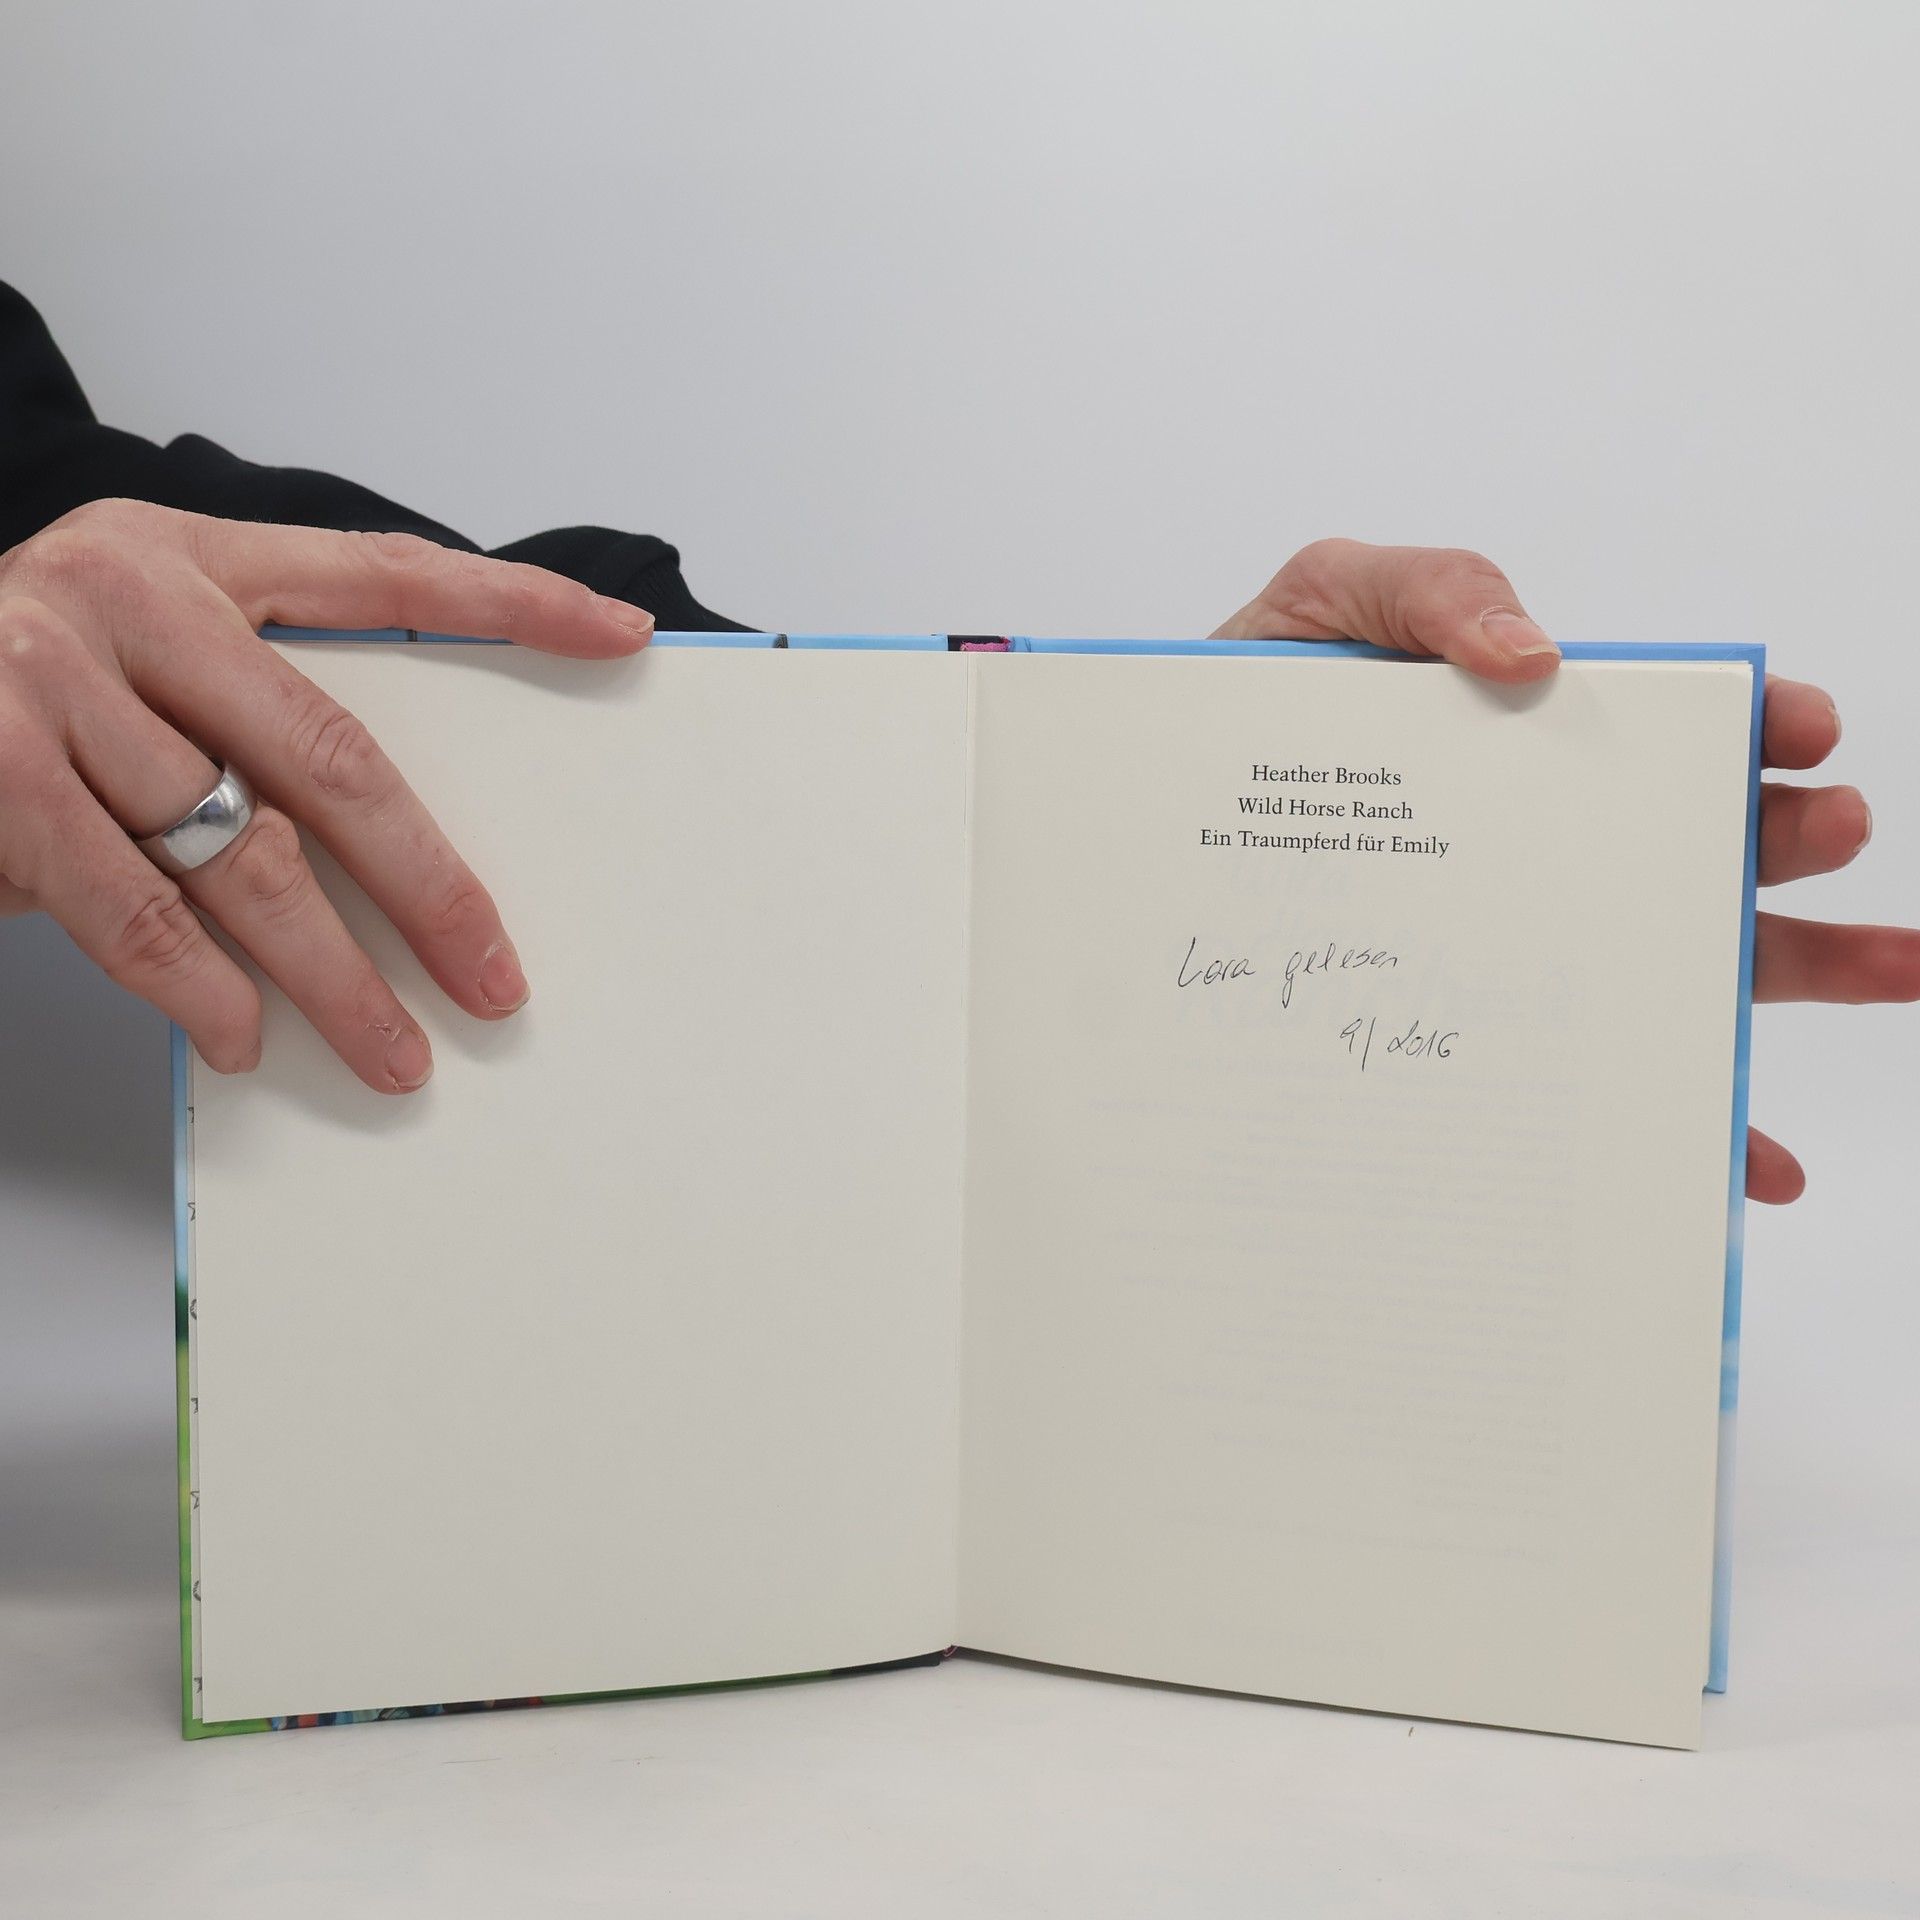 Heather Brooks
Wild Horse Ranch
Ein Traumpferd für Emily
Lara gelesen
9/2016